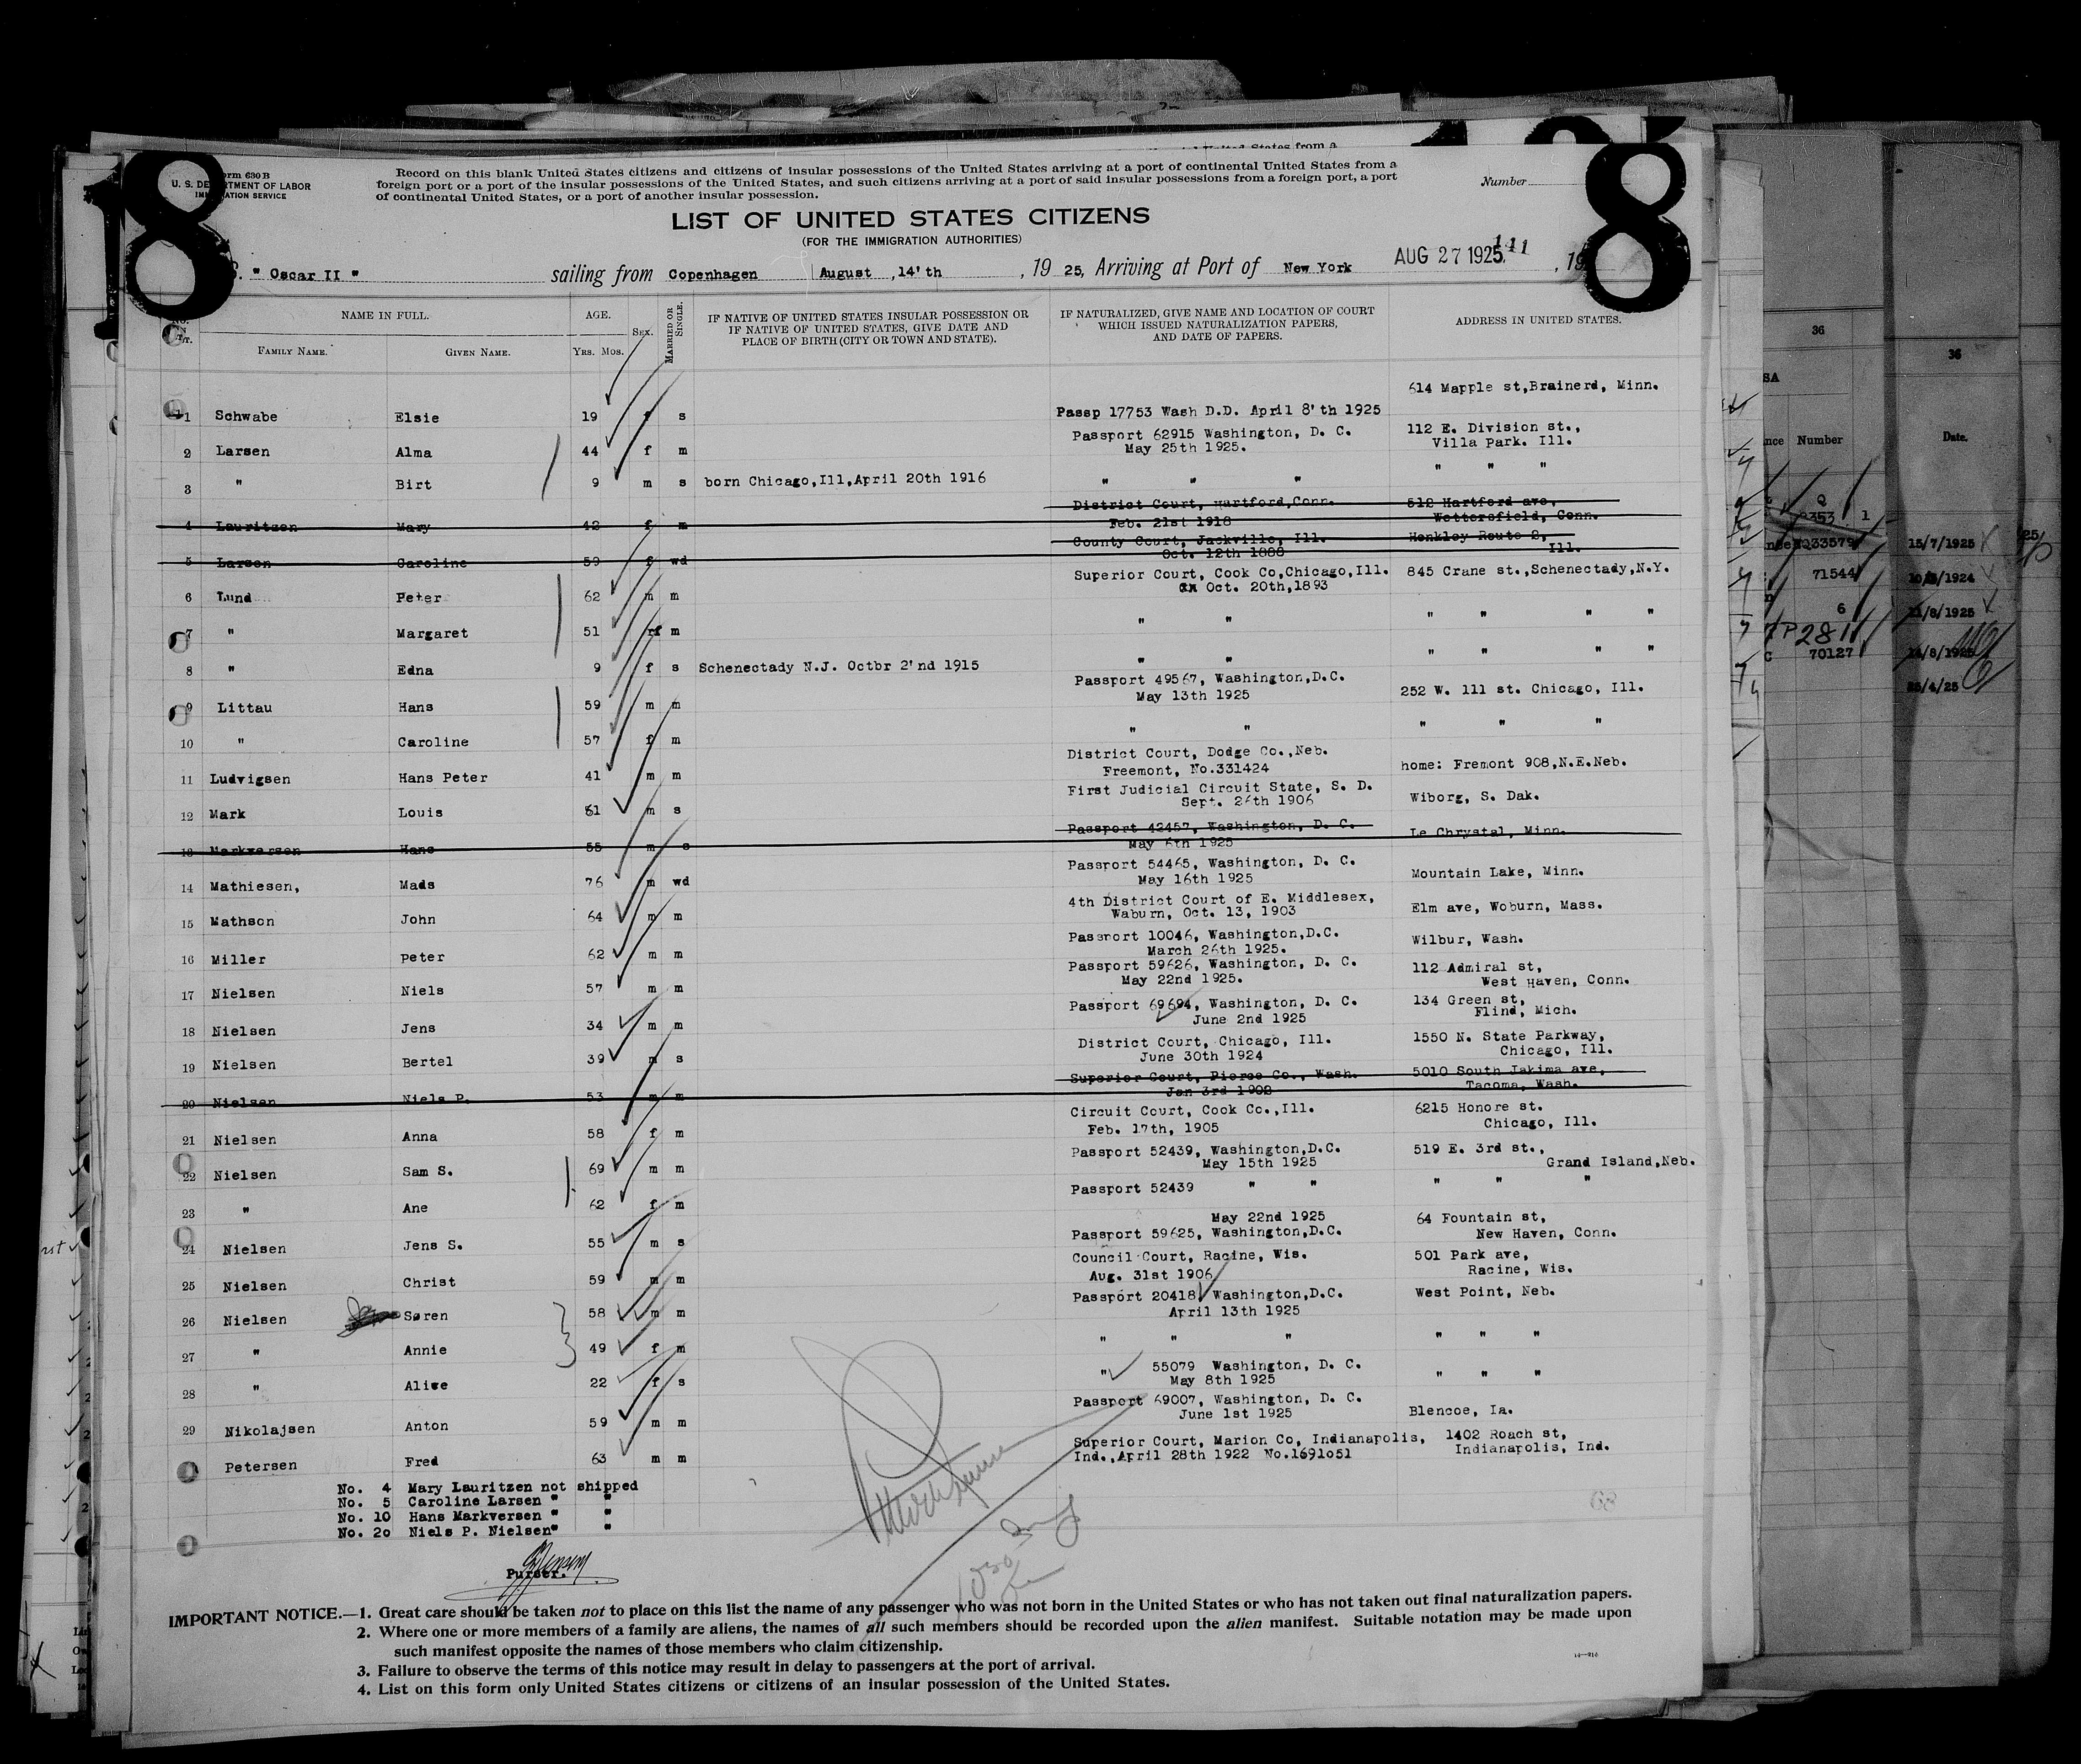 8
8
Form 630 B
U. S. DEPARTMENT OF LABOR
IMMIGRATION SERVICE
Record on this blank United States citizens and citizens of insular possessions of the United States arriving at a port of continental United States from a
foreign port or a port of the insular possessions of the United States, and such citizens arriving at a port of said insular possessions from a foreign port, a port
of continental United States, or a port of another insular possession.
Number
LIST OF UNITED STATES CITIZENS
(FOR THE IMMIGRATION AUTHORITIES)
S. " Oscar II " sailing from Copenhagen August ,14'th , 19 25, Arriving at Port of New York AUG 27 1925 141 , 19
NAME IN FULL. AGE. SEX. MARRIED OR SINGLE. IF NATIVE OF UNITED STATES INSULAR POSSESSION OR IF NATIVE OF UNITED STATES, GIVE DATE AND PLACE OF BIRTH (CITY OR TOWN AND STATE). IF NATURALIZED, GIVE NAME AND LOCATION OF COURT WHICH ISSUED NATURALIZATION PAPERS, AND DATE OF PAPERS. ADDRESS IN UNITED STATES.
FAMILY NAME. GIVEN NAME. YRS. MOS.
1 Schwabe Elsie 19 f s Passp 17753 Wash D.D. April 8'th 1925 614 Mapple st,Brainerd, Minn.
2 Larsen Alma 44 f m Passport 62915 Washington, D. C. May 25th 1925. 112 E. Division st., Villa Park. Ill.
3 " Birt 9 m s born Chicago,Ill,April 20th 1916 " " " " " "
4 Lauritzen Mary 42 f m District Court, Hartford,Conn. Feb. 21st 1918 512 Hartford ave, Wettersfield, Conn.
5 Larsen Caroline 59 f wd County Court, Jackville, Ill. Oct. 12th 1888 Henkley Route 2, Ill.
6 Lund Peter 62 m m Superior Court, Cook Co,Chicago,Ill. Oct. 20th,1893 845 Crane st.,Schenectady,N.Y.
7 " Margaret 51 f m " " " " " "
8 " Edna 9 f s Schenectady N.J. Octbr 2'nd 1915 " " " " " "
9 Littau Hans 59 m m Passport 49567, Washington,D.C. May 13th 1925 252 W. 111 st. Chicago, Ill.
10 " Caroline 57 f m " " " " "
11 Ludvigsen Hans Peter 41 m m District Court, Dodge Co.,Neb. Freemont, No.331424 home: Fremont 908,N.E.Neb.
12 Mark Louis 61 m s First Judicial Circuit State, S. D. Sept. 26th 1906 Wiborg, S. Dak.
13 Markversen Hans 55 m s Passport 42457, Washington, D. C. May 6th 1925 Le Chrystal, Minn.
14 Mathiesen, Mads 76 m wd Passport 54465, Washington, D. C. May 16th 1925 Mountain Lake, Minn.
15 Mathson John 64 m m 4th District Court of E. Middlesex, Waburn, Oct. 13, 1903 Elm ave, Woburn, Mass.
16 Miller Peter 62 m m Passport 10046, Washington,D.C. March 26th 1925. Wilbur, Wash.
17 Nielsen Niels 57 m m Passport 59626, Washington, D. C. May 22nd 1925. 112 Admiral st, West Haven, Conn.
18 Nielsen Jens 34 m m Passport 69694, Washington, D. C. June 2nd 1925 134 Green st, Flind, Mich.
19 Nielsen Bertel 39 m s District Court, Chicago, Ill. June 30th 1924 1550 N. State Parkway, Chicago, Ill.
20 Nielsen Niels P. 53 m m Superior Court, Pierce Co., Wash. Jan 3rd 1902 5010 South Jakima ave, Tacoma, Wash.
21 Nielsen Anna 58 f m Circuit Court, Cook Co.,Ill. Feb. 17th, 1905 6215 Honore st. Chicago, Ill.
22 Nielsen Sam S. 69 m m Passport 52439, Washington,D.C. May 15th 1925 519 E. 3rd st., Grand Island,Neb.
23 " Ane 62 f m Passport 52439 " " " " "
24 Nielsen Jens S. 55 m s May 22nd 1925 Passport 59625, Washington,D.C. 64 Fountain st, New Haven, Conn.
25 Nielsen Christ 59 m m Council Court, Racine, Wis. Aug. 31st 1906 501 Park ave, Racine, Wis.
26 Nielsen Søren 58 m m Passport 20418 Washington,D.C. April 13th 1925 West Point, Neb.
27 " Annie 49 f m " " " " " "
28 " Alise 22 f s " 55079 Washington, D. C. May 8th 1925 " " "
29 Nikolajsen Anton 59 m m Passport 69007, Washington, D. C. June 1st 1925 Blencoe, Ia.
Petersen Fred 63 m m Superior Court, Marion Co, Indianapolis, Ind.,April 28th 1922 No.1691o51 1402 Roach st, Indianapolis, Ind.
No. 4 Mary Lauritzen not shipped
No. 5 Caroline Larsen " "
No. 10 Hans Markversen " "
No. 2o Niels P. Nielsen" "
68
Purser.
IMPORTANT NOTICE.—1. Great care should be taken not to place on this list the name of any passenger who was not born in the United States or who has not taken out final naturalization papers.
2. Where one or more members of a family are aliens, the names of all such members should be recorded upon the alien manifest. Suitable notation may be made upon
such manifest opposite the names of those members who claim citizenship.
3. Failure to observe the terms of this notice may result in delay to passengers at the port of arrival.
4. List on this form only United States citizens or citizens of an insular possession of the United States.
36
36
Number
Date.
15/7/1925
71544
6
11/8/1925
P2811
70127
25/4/25